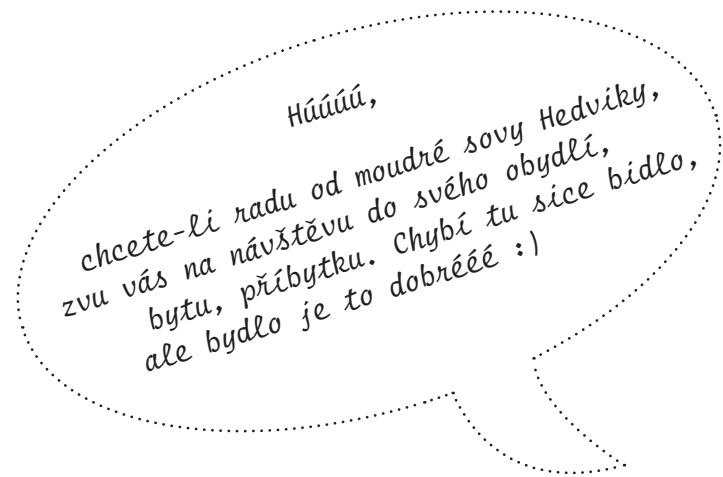 Húúúú,
chcete-li radu od moudré sovy Hedviky,
zvu vás na návštěvu do svého obydlí,
bytu, příbytku. Chybí tu sice bidlo,
ale bydlo je to dobrééé :)